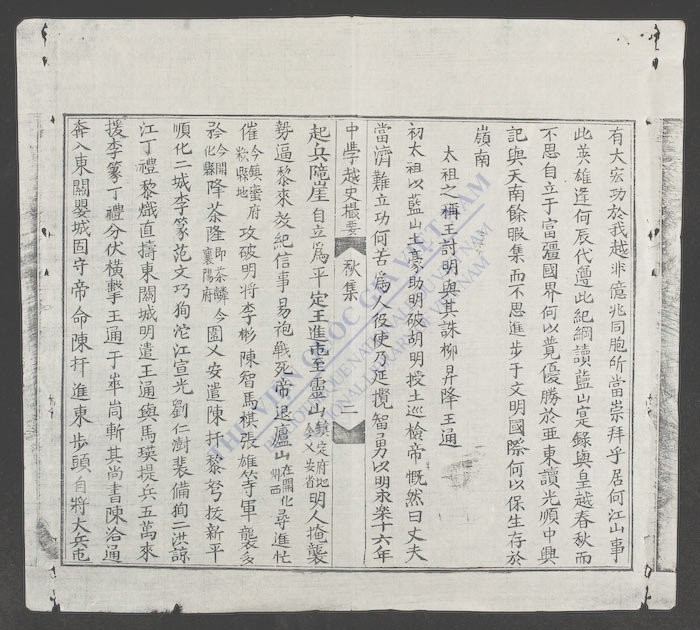 有大宏功於我越非億兆同胞所當崇拜乎居何江山事
此英雄逢何辰代遵此紀綱讀藍山寔錄與皇越春秋而
不思自立于富彊國界何以竟優勝於亜東讀光順中興
記與天南餘暇集而不思進步于文明國際何以保生存於
嶺南
太祖之稱王討明與其誅柳昇降王通
初太祖以藍山土豪助明破胡明授土巡檢帝慨然曰丈夫
當濟難立功何苦爲人役使乃延攬智勇以明永樂十六年
中學越史撮要 秋集 二
起兵隢崖自立爲平定王進屯至靈山鎮定府地今乂安省明人掩襲
勢逼黎來效紀信事易袍戰死帝退廬山在關化州西尋進忙
催今鎮蛮府 縣地攻破明將李彬陳智馬棋張雄等軍襲多
矜今開化縣降茶隆即茶麟今襄陽府圍乂安遣陳扞黎弩拔新平
順化二城李篆范文巧狗沱江宣光劉仁澍裴備狗二洪諒
江丁禮黎熾直擣東關城明遣王通與馬瑛提兵五萬來
援李篆丁禮分伏橫擊王通于寧岢斬其尚書陳洽通
奔入東關嬰城固守帝命陳扞進東步頭自將大兵屯
THƯ VIỆN QUỐC GIA VIỆT NAM
NATIONAL LIBRARY OF VIETNAM